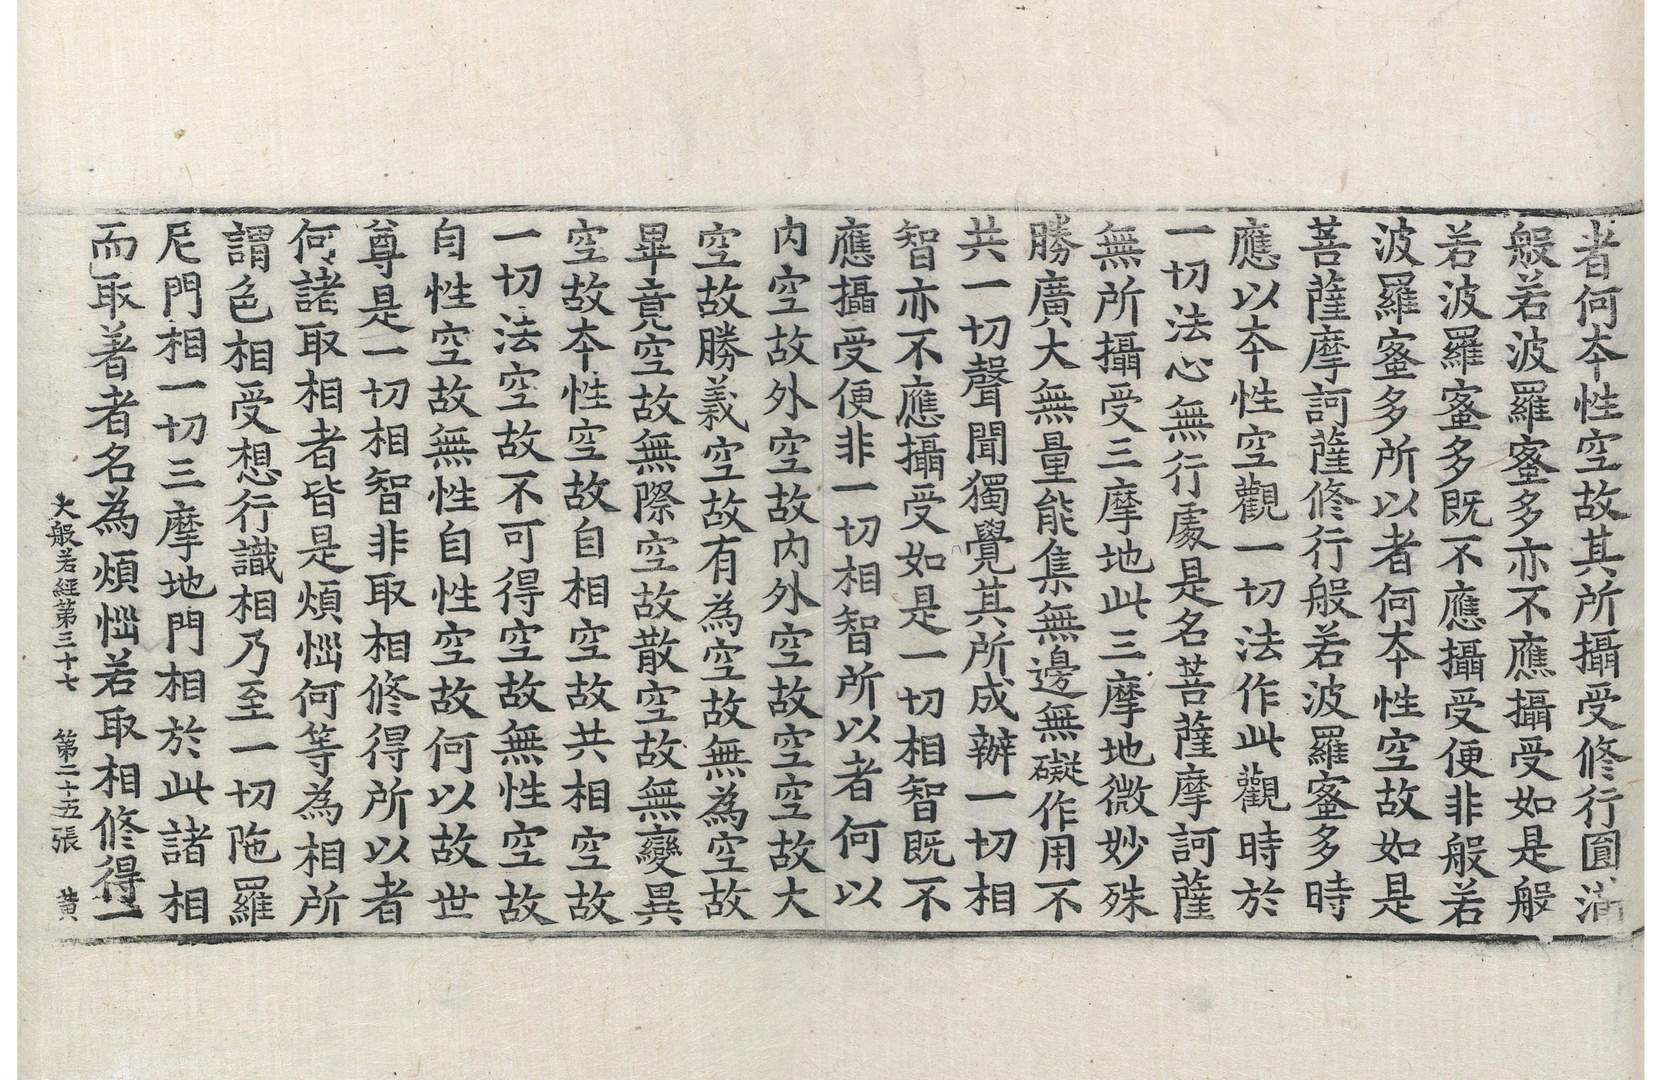 者何本性空故其所攝受修行圓滿
般若波羅蜜多亦不應攝受如是般
若波羅蜜多既不應攝受便非般若
波羅蜜多所以者何本性空故如是
菩薩摩訶薩修行般若波羅蜜多時
應以本性空觀一切法作此觀時於
一切法心無行處是名菩薩摩訶薩
無所攝受三摩地此三摩地微妙殊
勝廣大無量能集無邊無礙作用不
共一切聲聞獨覺其所成辦一切相
智亦不應攝受如是一切相智既不
應攝受便非一切相智所以者何以
內空故外空故內外空故空空故大
空故勝義空故有為空故無為空故
畢竟空故無際空故散空故無變異
空故本性空故自相空故共相空故
一切法空故不可得空故無性空故
自性空故無性自性空故何以故世
尊是一切相智非取相修得所以者
何諸取相者皆是煩惱何等為相所
謂色相受想行識相乃至一切陁羅
尼門相一切三摩地門相於此諸相
而取著者名為煩惱若取相修得一
大般若經第三十七 第二十五張 黄